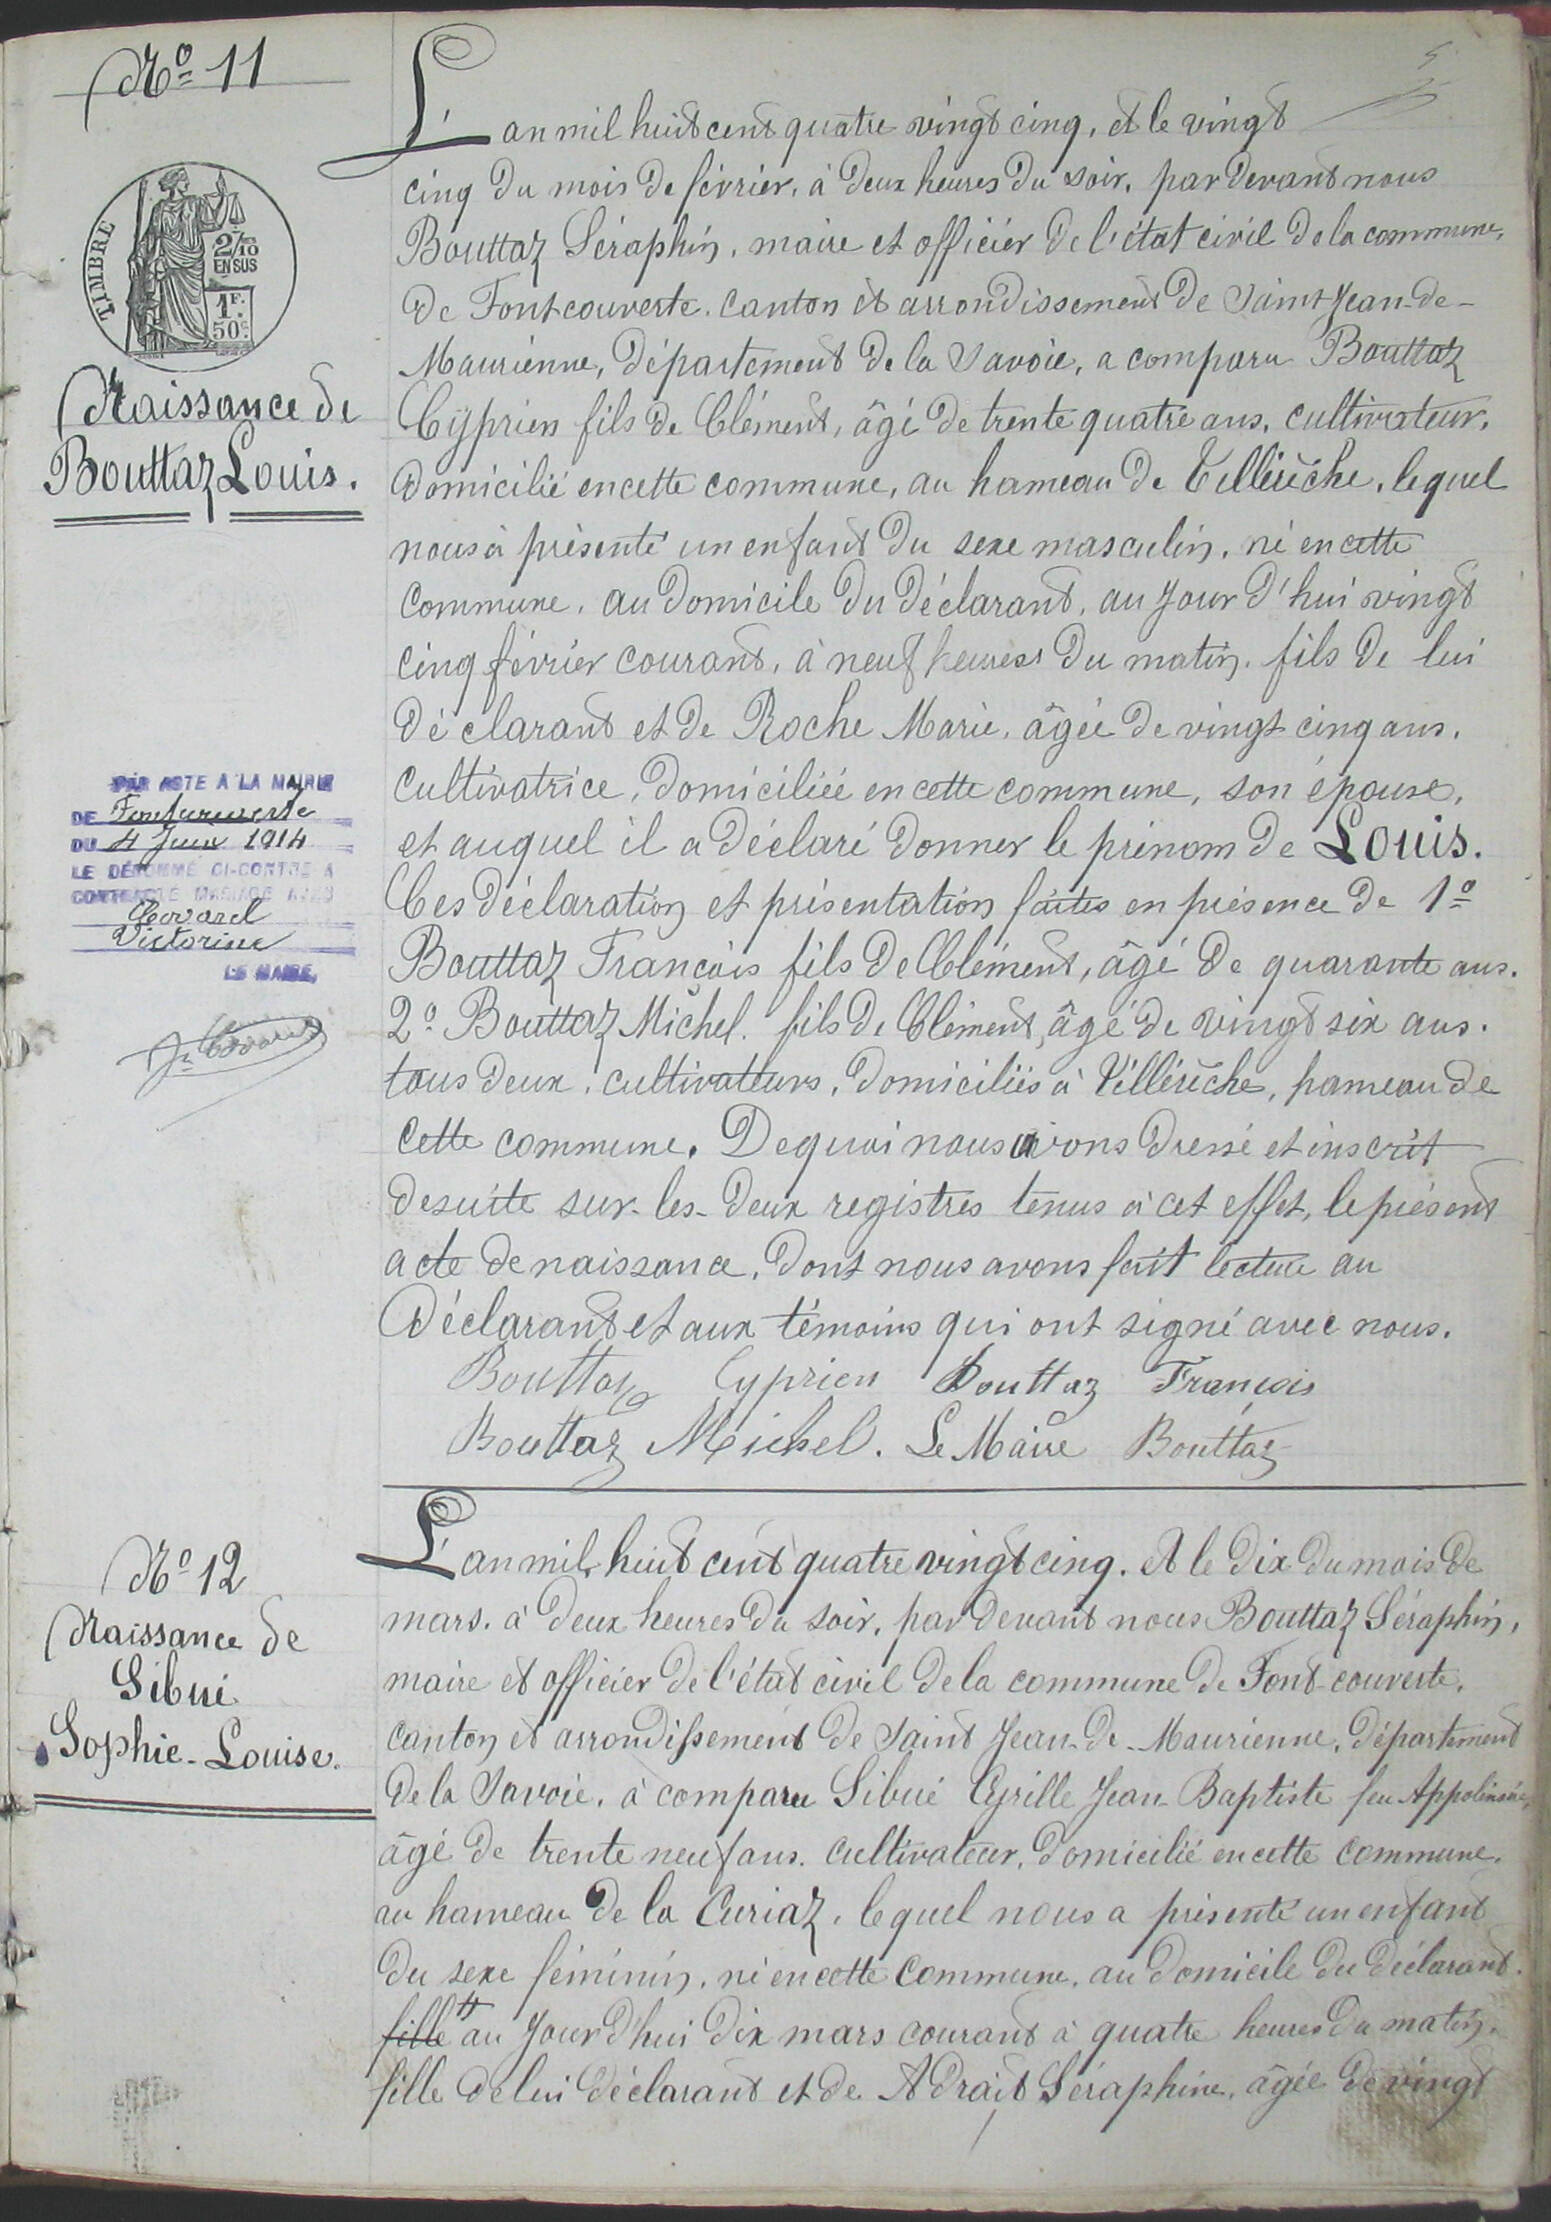 N° 11
TIMBRE
2/10
EN SUS
1 F.
50 c.
Naissance de
Bouttaz Louis.
PAR ACTE A LA MAIRIE
DE Fontcouverte
DU 4 Juin 1914
LE DÉNOMMÉ CI-CONTRE A
CONTRACTÉ MARIAGE AVEC
Covarel
Victorine
LE MAIRE,
L'an mil huit cent quatre vingt cinq, et le vingt
cinq du mois de février, à deux heures du soir, par devant nous
Bouttaz Séraphin, maire et officier de l'état civil de la commune,
de Fontcouverte, canton et arrondissement de Saint-Jean-de-
Maurienne, département de la Savoie, a comparu Bouttaz
Cyprien fils de Clément, âgé de trente quatre ans, cultivateur,
domicilié en cette commune, au hameau de Villerèche, lequel
nous à présenté un enfant du sexe masculin, né en cette
commune, au domicile du déclarant, au jour d'hui vingt
cinq février courant, à neuf heures du matin, fils de lui
déclarant et de Roche Marie, âgée de vingt cinq ans,
cultivatrice, domiciliée en cette commune, son épouse,
et auquel il a déclaré donner le prénom de Louis.
Ces déclaration et présentation faites en présence de 1°
Bouttaz François fils de Clément, âgé de quarante ans.
2° Bouttaz Michel. fils de Clément, âgé de vingt six ans.
tous deux, cultivatteurs, domiciliés à Villerèche, hameau de
cette commune. De quoi nous avons dressé et inscrit
desuite sur-les-deux registres tenus à cet effet, le présent
acte de naissance, dont nous avons fait lecture au
déclarant et aux témoins qui ont signé avec nous.
Bouttaz Cyprien Bouttaz François
Bouttaz Michel. Le Maire Bouttaz
N° 12
Naissance de
Sibué
Sophie-Louise.
L'an mil huit cent quatre vingt cinq. et le dix du mois de
mars, à deux heures du soir, par devant nous Bouttaz Séraphin,
maire et officier de l'état civil de la commune de Font-couverte,
canton et arrondissement de Saint Jean-de-Maurienne, département
de la Savoie, à comparu Sibué Cyrille Jean-Baptiste feu Appolinaire,
âgé de trente neuf ans. cultivateur, domicilié en cette commune.
au hameau de la Curiaz, lequel nous a présenté un enfant
du sexe féminin, né en cette commune, au domicile du déclarant.
fille au jour d'hui dix mars courant à quatre heures du matin,
fille de lui déclarant et de Adrait Séraphine, âgée de vingt